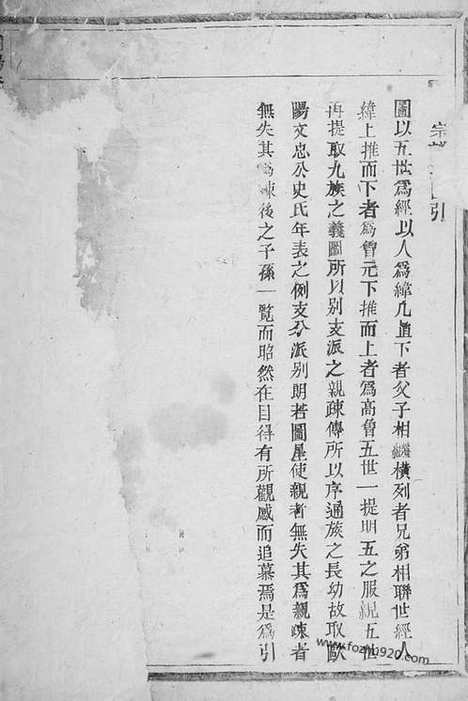 宗 引
圖以五世爲經以人爲緯凡直下者父子相繼橫列者兄弟相聯世經人
緯上推而下者爲曾元下推而上者爲高曾五世一提明五之服親五世
再提取九族之義圖所以别支派之親疎傳所以序通族之長幼故取歐
陽文忠公史氏年表之例支分派别朗若圖星使親者無失其爲親疎者
無失其爲疎後之子孫一覧而昭然在目得有所觀感而追慕焉是爲引
www.fozhu920.com